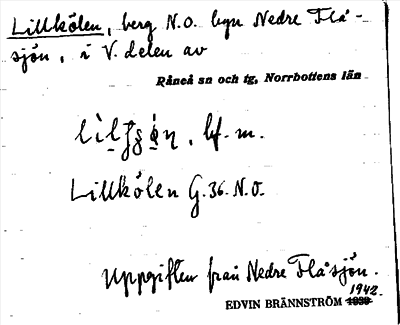 Lillkölen, berg N.O. byn Nedre Flå-
sjön, i V. delen av
Råneå sn och tg, Norrbottens län
bf. m.
Lillkölen G. 36. N.O.
Uppgiften från Nedre Flåsjön.
1942
EDVIN BRÄNNSTRÖM 1939